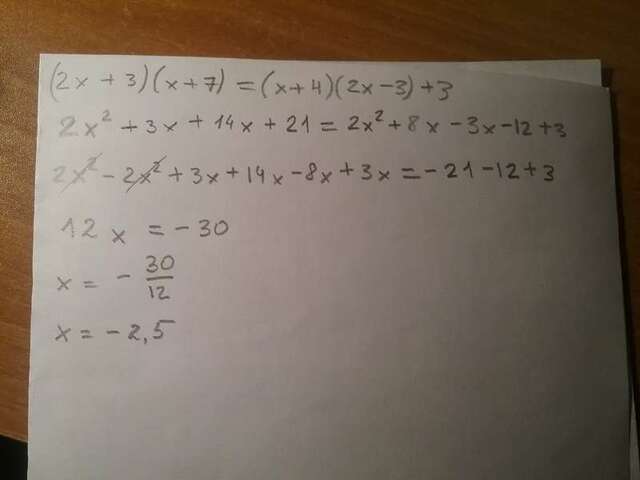 (2x + 3)(x + 7) = (x + 4)(2x - 3) + 3
2x² + 3x + 14x + 21 = 2x² + 8x - 3x - 12 + 3
2x² - 2x² + 3x + 14x - 8x + 3x = - 21 - 12 + 3
12x = - 30
x = - 30/12
x = - 2,5